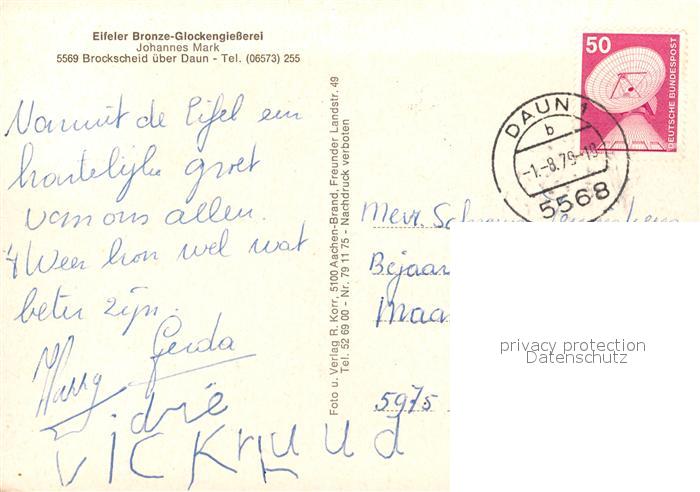 Eifeler Bronze-Glockengießerei
Johannes Mark
5569 Brockscheid über Daun - Tel. (06573) 255
Vanuit de Eifel een
hartelijke groet
van ons allen.
't Weer kon wel wat
beter zijn.
Harry Gerda
Foto u. Verlag R. Korr, 5100 Aachen-Brand, Freunder Landstr. 49
Tel. 52 69 00 - Nr. 79 11 75 - Nachdruck verboten
50
DEUTSCHE BUNDESPOST
DAUN 1
b
-1.-8.79-19
5568
Mevr.
Bejaar
Maa
5975
privacy protection
Datenschutz